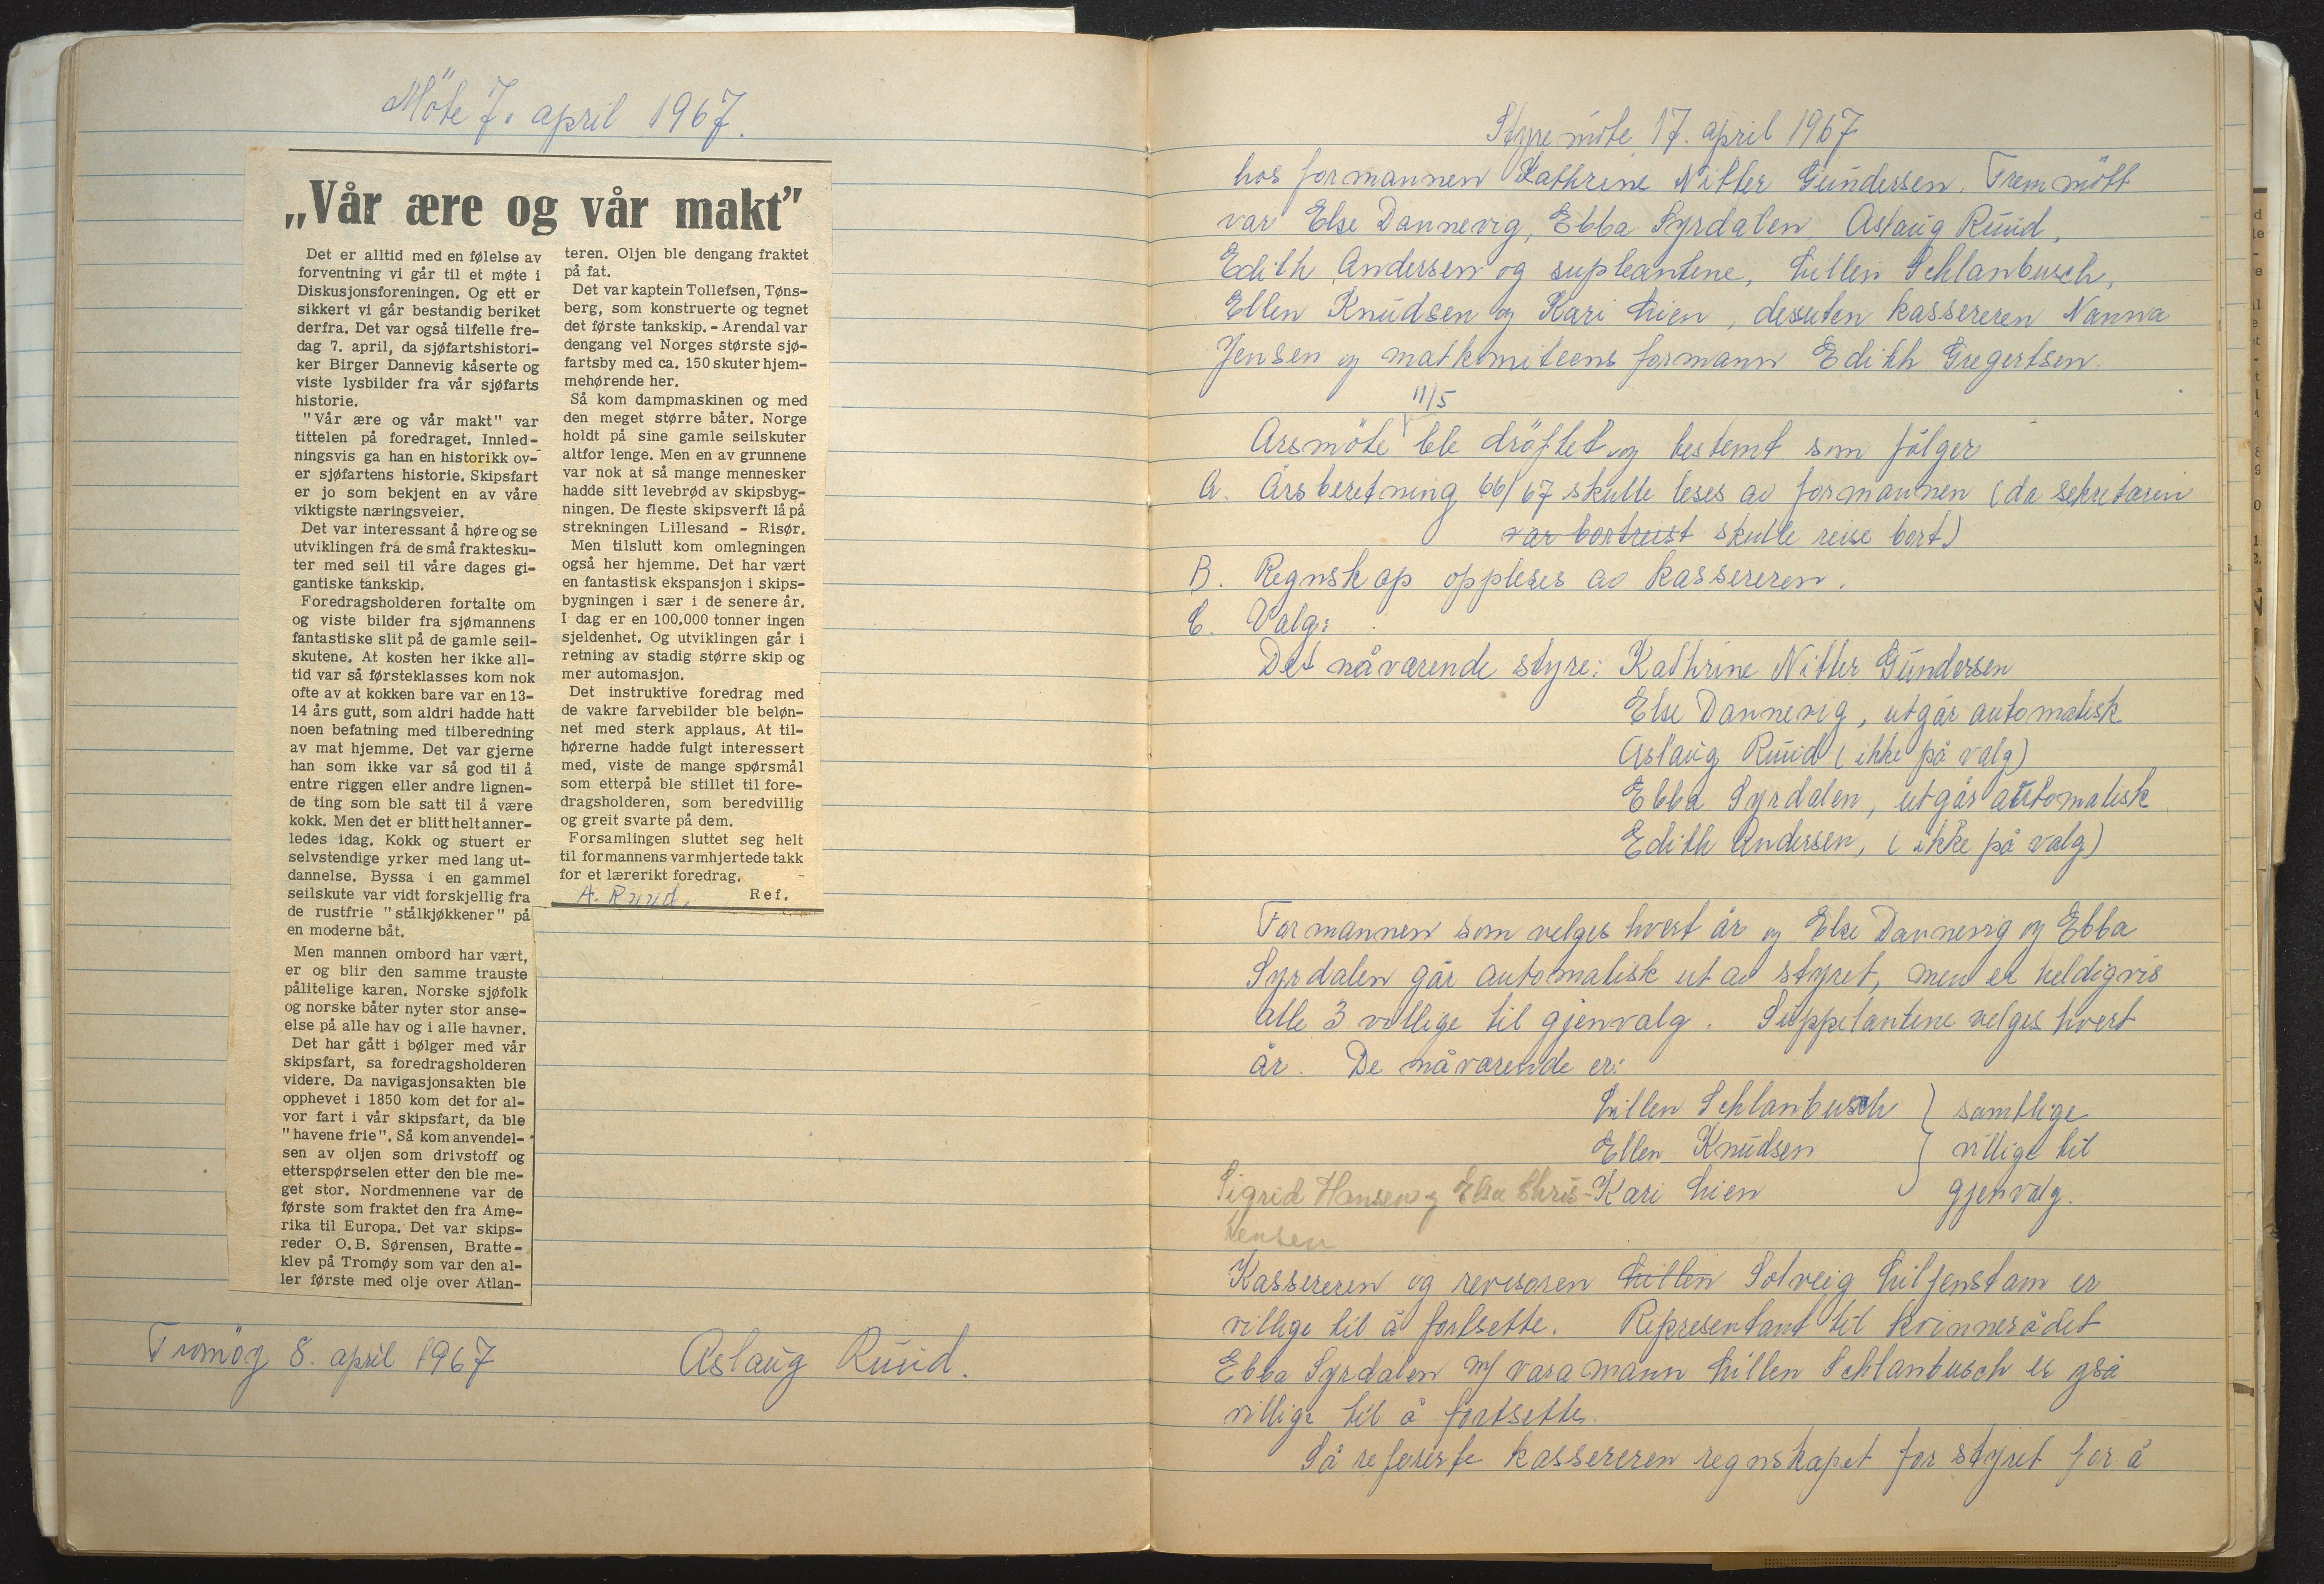 Möte 7. april 1967.
„Vår ære og vår makt”
Det er alltid med en følelse av
forventning vi går til et møte i
Diskusjonsforeningen. Og ett er
sikkert vi går bestandig beriket
derfra. Det var også tilfelle fre-
dag 7. april, da sjøfartshistori-
ker Birger Dannevig kåserte og
viste lysbilder fra vår sjøfarts
historie.
"Vår ære og vår makt" var
tittelen på foredraget. Innled-
ningsvis ga han en historikk ov-
er sjøfartens historie. Skipsfart
er jo som bekjent en av våre
viktigste næringsveier.
Det var interessant å høre og se
utviklingen fra de små fraktesku-
ter med seil til våre dages gi-
gantiske tankskip.
Foredragsholderen fortalte om
og viste bilder fra sjømannens
fantastiske slit på de gamle seil-
skutene. At kosten her ikke all-
tid var så førsteklasses kom nok
ofte av at kokken bare var en 13-
14 års gutt, som aldri hadde hatt
noen befatning med tilberedning
av mat hjemme. Det var gjerne
han som ikke var så god til å
entre riggen eller andre lignen-
de ting som ble satt til å være
kokk. Men det er blitt helt anner-
ledes idag. Kokk og stuert er
selvstendige yrker med lang ut-
dannelse. Byssa i en gammel
seilskute var vidt forskjellig fra
de rustfrie "stålkjøkkener" på
en moderne båt.
Men mannen ombord har vært,
er og blir den samme trauste
pålitelige karen. Norske sjøfolk
og norske båter nyter stor anse-
else på alle hav og i alle havner.
Det har gått i bølger med vår
skipsfart, sa foredragsholderen
videre. Da navigasjonsakten ble
opphevet i 1850 kom det for al-
vor fart i vår skipsfart, da ble
"havene frie". Så kom anvendel-
sen av oljen som drivstoff og
etterspørselen etter den ble me-
get stor. Nordmennene var de
første som fraktet den fra Ame-
rika til Europa. Det var skips-
reder O.B. Sørensen, Bratte-
klev på Tromøy som var den al-
ler første med olje over Atlan-
teren. Oljen ble dengang fraktet
på fat.
Det var kaptein Tollefsen, Tøns-
berg, som konstruerte og tegnet
det første tankskip. - Arendal var
dengang vel Norges største sjø-
fartsby med ca. 150 skuter hjem-
mehørende her.
Så kom dampmaskinen og med
den meget større båter. Norge
holdt på sine gamle seilskuter
altfor lenge. Men en av grunnene
var nok at så mange mennesker
hadde sitt levebrød av skipsbyg-
ningen. De fleste skipsverft lå på
strekningen Lillesand - Risør.
Men tilslutt kom omlegningen
også her hjemme. Det har vært
en fantastisk ekspansjon i skips-
bygningen i sær i de senere år.
I dag er en 100.000 tonner ingen
sjeldenhet. Og utviklingen går i
retning av stadig større skip og
mer automasjon.
Det instruktive foredrag med
de vakre farvebilder ble beløn-
net med sterk applaus. At til-
hørerne hadde fulgt interessert
med, viste de mange spørsmål
som etterpå ble stillet til fore-
dragsholderen, som beredvillig
og greit svarte på dem.
Forsamlingen sluttet seg helt
til formannens varmhjertede takk
for et lærerikt foredrag.
A. Ruud. Ref.
Tromöy 8. april 1967 Aslaug Ruud.
Styremöte 17. april 1967
hos formannen Kathrine Nitter Gundersen. Fremmött
var Else Dannevig, Ebba Syrdalen, Aslaug Ruud,
Edith Andersen og supleantene, Lillen Schlanbusch,
Ellen Knudsen og Kari Lien, desuten kassereren Nanna
Jensen og matkomiteens formann Edith Gregertsen.
11/5
Årsmöte ble dröftet og bestemt som fölger
A. Årsberetning 66/67 skulle leses av formannen (da sekretæren
var bortreist skulle reise bort)
B. Regnskap oppleses av kassereren.
C. Valg:
Det nåværende styre: Kathrine Nitter Gundersen
Else Dannevig, utgår automatisk
Aslaug Ruud (ikke på valg)
Ebba Syrdalen, utgår automatisk
Edith Andersen, (ikke på valg)
Formannen som velges hvert år og Else Dannevig og Ebba
Syrdalen går automatisk ut av styret, men er heldigvis
alle 3 villige til gjenvalg. Suppelantene velges hvert
år. De nåværende er:
Lillen Schlanbusch } samtlige
Ellen Knudsen } villige til
Sigrid Hansen og Elsa Chris- Kari Lien gjenvalg.
tensen
Kassereren og revisoren Lillen Solveig Liljenstam er
villige til å fortsette. Representant til kvinnerådet
Ebba Syrdalen m/ varamann Lillen Schlanbusch er også
villige til å fortsette.
Så refererte kassereren regnskapet for styret for å